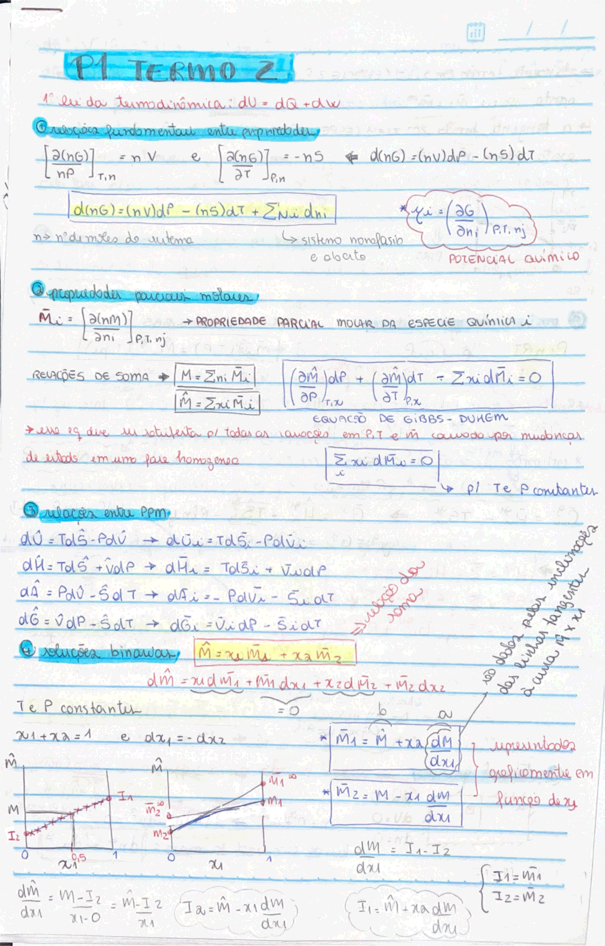 P1 TERMO 2
1ª lei da termodinâmica: dU = dQ + dW
① relações fundamentais entre propriedades
[∂(nG)/nP]T,n = nV e [∂(nG)/∂T]P,n = -nS ← d(nG) = (nV)dP - (nS)dT
d(nG) = (nV)dP - (nS)dT + Σ Ni dni
* μi = (∂G/∂ni)P,T,nj
n → nº de moles do sistema ↳ sistema monofásico
e aberto POTENCIAL QUÍMICO
② propriedades parciais molares
M̄i = [∂(nM)/∂ni]P,T,nj → PROPRIEDADE PARCIAL MOLAR DA ESPECIE QUÍMICA i
RELAÇÕES DE SOMA → M = Σ ni M̄i
M̂ = Σ xi M̄i
(∂M̂/∂P)T,x dP + (∂M̂/∂T)P,x dT - Σ xi dM̄i = 0
EQUAÇÃO DE GIBBS-DUHEM
→ essa eq deve ser satisfeita p/ todas as variações em P,T e m̄ causado por mudanças
de estado em uma fase homogenea
Σi xi dM̄i = 0
↳ p/ T e P constantes
③ relações entre PPM
dÛ = TdŜ - PdV̂ → dŪi = TdS̄i - PdV̄i
dĤ = TdŜ + V̂dP → dH̄i = TdS̄i + V̄idP
dÂ = PdV̂ - ŜdT → dĀi = -PdV̄i - S̄idT
dĜ = V̂dP - ŜdT → dḠi = V̄idP - S̄idT
④ soluções binárias M̂ = x1M̄1 + x2M̄2
⇒ relação da
soma
dM̂ = x1dM̄1 + M̄1dx1 + x2dM̄2 + M̄2dx2
= 0
T e P constantes
x1 + x2 = 1 e dx1 = -dx2
b a
* M̄1 = M̂ + x2 dM/dx1
* M̄2 = M - x1 dM/dx1
são dados pelas inclinações
das linhas tangentes
à curva M̂ x x1
representados
graficamente em
função de x1
M̂ M I2 I1 0 0,5 1 x1
M̂ M̄2∞ M2 M̄1∞ M1 0 1 x1
dM/dx1 = I1 - I2
I1 = M̄1
I2 = M̄2
dM̂/dx1 = M - I2/x1 - 0 = M̂ - I2/x1
I2 = M̂ - x1 dM/dx1
I1 = M̂ + x2 dM/dx1